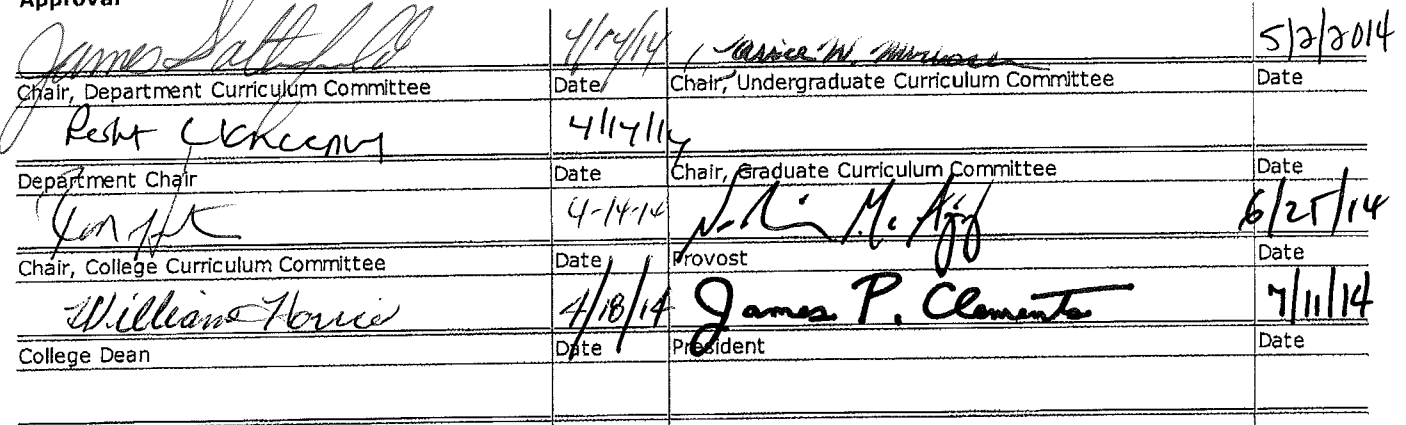 Approval
James Satterfield 4/14/14 Janice W. 5/2/2014
Chair, Department Curriculum Committee Date Chair, Undergraduate Curriculum Committee Date
4/14/14
Department Chair Date Chair, Graduate Curriculum Committee Date
4-14-14 6/25/14
Chair, College Curriculum Committee Date Provost Date
William 4/18/14 James P. Clements 7/11/14
College Dean Date President Date